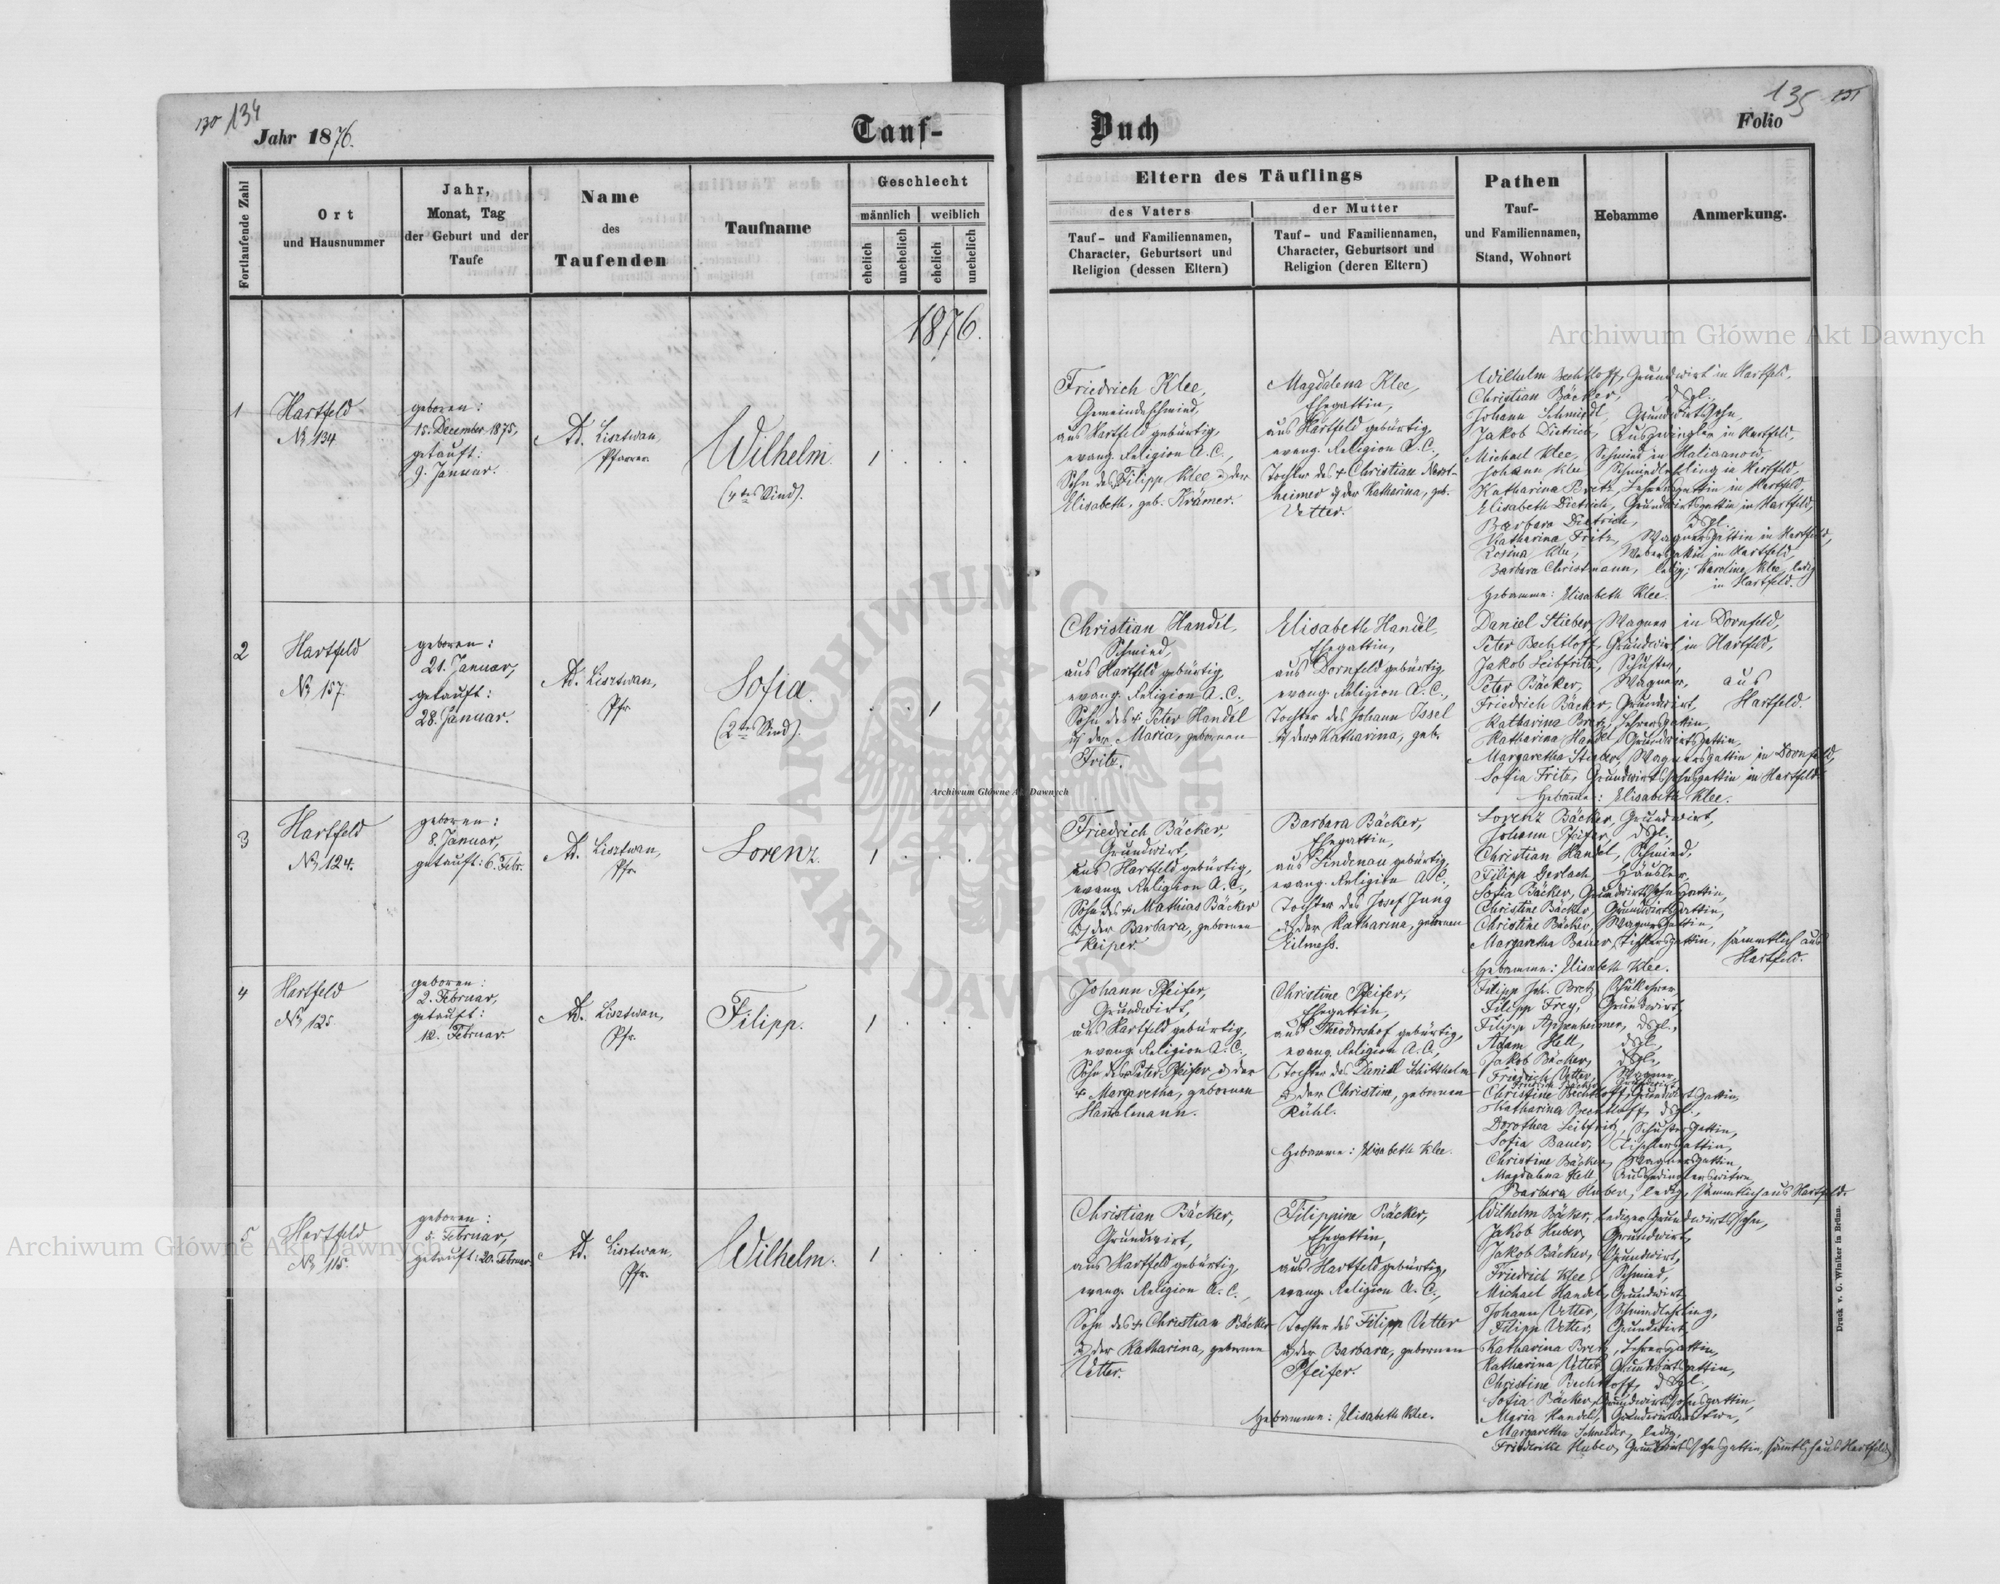 130 134
Jahr 1876.
Tauf-
Fortlaufende Zahl
Ort
und Hausnummer
Jahr,
Monat, Tag
der Geburt und der
Taufe
Name
des
Taufenden
Taufname
Geschlecht
männlich
weiblich
ehelich
unehelich
ehelich
unehelich
1876.
1
Hartfeld
No 134
geboren:
15. December 1875,
getauft:
9. Januar.
Ad. Lisztwan,
Pfarrer.
Wilhelm.
(4tes Kind).
1 . . .
2
Hartfeld
No 157.
geboren:
21. Januar,
getauft:
28. Januar.
Ad. Lisztwan,
Pfr.
Sofia.
(2tes Kind).
. . 1 .
3
Hartfeld
No 124.
geboren:
8. Januar,
getauft: 6. Febr.
Ad. Lisztwan,
Pfr.
Lorenz.
1 . . .
4
Hartfeld
No 125.
geboren:
2. Februar,
getauft:
12. Februar.
Ad. Lisztwan,
Pfr.
Filipp.
1 . . .
5
Hartfeld
No 115.
geboren:
5. Februar,
getauft: 20. Februar.
Ad. Lisztwan,
Pfr.
Wilhelm.
1 . . .
Buch
135
Folio
Eltern des Täuflings
des Vaters
Tauf- und Familiennamen,
Character, Geburtsort und
Religion (dessen Eltern)
der Mutter
Tauf- und Familiennamen,
Character, Geburtsort und
Religion (deren Eltern)
Pathen
Tauf-
und Familiennamen,
Stand, Wohnort
Hebamme
Anmerkung.
Friedrich Klee,
Gemeindeschmied,
aus Hartfeld gebürtig,
evang. Religion A. C.,
Sohn des Filipp Klee u. der
Elisabeth, geb. Krämer.
Magdalena Klee,
Ehegattin,
aus Hartfeld gebürtig,
evang. Religion A. C.,
Tochter des + Christian
heimer u. der Katharina, geb.
Vetter.
Wilhelm Bechtloff, Grundwirt in Hartfeld,
Christian Bäcker, dsgl.,
Johann Schmidt, Grundwirtssohn,
Jakob Dietrich, Ausgedingler in Hartfeld,
Michael Klee, Schmied in
Johann Klee, Schmiedlehrling in Hartfeld,
Katharina Bretz, Lehrersgattin in Hartfeld,
Elisabeth Dietrich, Grundwirtsgattin in Hartfeld,
Barbara Dietrich, dsgl.,
Katharina Fritz, Wagnersgattin in Hartfeld,
Rosina Klee, Webersgattin in Hartfeld,
Barbara Christmann, ledig; Karoline Klee, ledig
in Hartfeld.
Hebamme: Elisabeth Klee.
Christian Handel,
Schmied,
aus Hartfeld gebürtig,
evang. Religion A. C.,
Sohn des + Peter Handel
u. der Maria, gebornen
Fritz.
Elisabeth Handel,
Ehegattin,
aus Dornfeld gebürtig,
evang. Religion A. C.,
Tochter des Johann Issel
u. der Katharina, geb.
Daniel Stieber, Wagner in Dornfeld,
Peter Bechtloff, Grundwirt in Hartfeld,
Jakob Leibfritz, Schuster,
Peter Bäcker, Wagner, aus
Friedrich Bäcker, Grundwirt, Hartfeld.
Katharina Bretz, Lehrersgattin,
Katharina Handel, Grundwirtsgattin,
Margaretha Stieber, Wagnersgattin in Dornfeld,
Sofia Fritz, Grundwirtssohnsgattin in Hartfeld.
Hebamme: Elisabeth Klee.
Friedrich Bäcker,
Grundwirt,
aus Hartfeld gebürtig,
evang. Religion A. C.,
Sohn des + Mathias Bäcker
u. der Barbara, gebornen
Keiper.
Barbara Bäcker,
Ehegattin,
aus Lindenau gebürtig,
evang. Religion A. C.,
Tochter des Josef Jung
u. der Katharina, gebornen
Lorenz Bäcker, Grundwirt,
Johann Pfeifer, dsgl.,
Christian Handel, Schmied,
Filipp Gerlach, Häusler,
Sofia Bäcker, Grundwirtssohnsgattin,
Christine Bäcker, Grundwirtsgattin,
Christine Bäcker, Wagnersgattin,
Margaretha Bauer, Tischlersgattin, sämmtlich aus
Hartfeld.
Hebamme: Elisabeth Klee.
Johann Pfeifer,
Grundwirt,
aus Hartfeld gebürtig,
evang. Religion A. C.,
Sohn des Peter Pfeifer u. der
+ Margaretha, gebornen
Christine Pfeifer,
Ehegattin,
aus Theodorshof gebürtig,
evang. Religion A. C.,
Tochter des Daniel
u. der Christine, gebornen
Rühl.
Hebamme: Elisabeth Klee.
Filipp Joh. Bretz, Schullehrer,
Filipp Frey, Grundwirt,
Filipp Appenheimer, dsgl.,
Adam Hell, dsgl.,
Jakob Bäcker, dsgl.,
Friedrich Vetter, Wagner,
Friedrich Bäcker, Grundwirt,
Christine Bechtloff, Grundwirtsgattin,
Katharina Bechtloff, dsgl.,
Dorothea Leibfritz, Schustersgattin,
Sofia Bauer, Tischlersgattin,
Christine Bäcker, Wagnersgattin,
Magdalena Hell, Ausgedinglerswitwe,
Barbara Huber, ledig, sämmtlich aus Hartfeld.
Christian Bäcker,
Grundwirt,
aus Hartfeld gebürtig,
evang. Religion A. C.,
Sohn des + Christian Bäcker
u. der Katharina, geborne
Vetter.
Filippine Bäcker,
Ehegattin,
aus Hartfeld gebürtig,
evang. Religion A. C.,
Tochter des Filipp Vetter
u. der Barbara, gebornen
Pfeifer.
Hebamme: Elisabeth Klee.
Wilhelm Bäcker, lediger Grundwirtssohn,
Jakob Huber, Grundwirt,
Jakob Bäcker, Grundwirt,
Friedrich Klee, Schmied,
Michael Handel, Grundwirt,
Johann Vetter, Schmiedlehrling,
Filipp Vetter, Grundwirt,
Katharina Bretz, Lehrersgattin,
Katharina Vetter, Grundwirtsgattin,
Christine Bechtloff, dsgl.,
Sofia Bäcker, Grundwirtssohnsgattin,
Maria Handel, Grundwirtswitwe,
Margaretha Schneider, ledig,
Friederike Huber, Grundwirtssohnsgattin, sämmtlich aus Hartfeld.
Druck v. C. Winiker in Brünn.
Archiwum Główne Akt Dawnych
Archiwum Główne Akt Dawnych
Archiwum Główne Akt Dawnych
ARCHIWUM GŁÓWNE AKT DAWNYCH